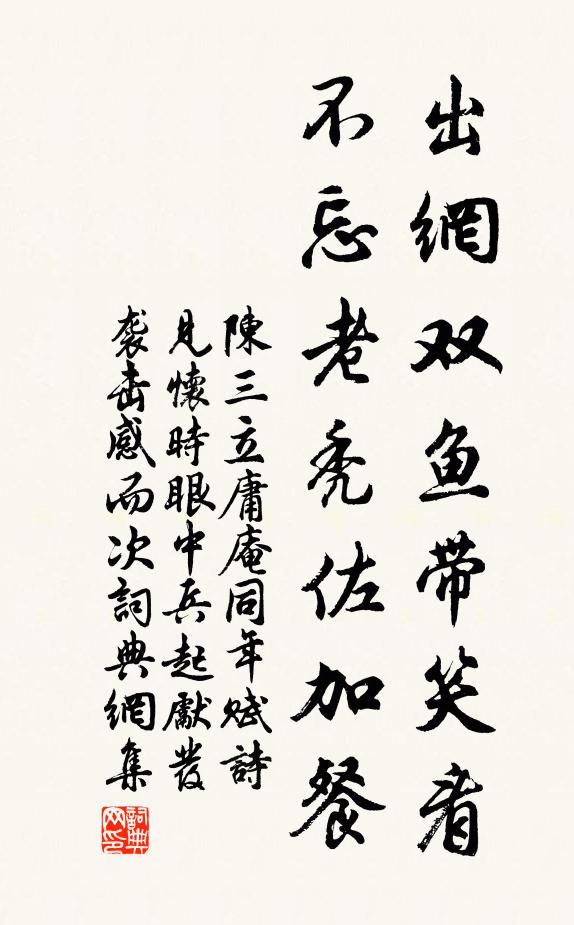 出網双鱼带笑看
不忘老秃佐加餐
陳三立庸庵同年赋詩
見懷時眼中兵起獻發
袭击感而次詞典網集
詞典网印